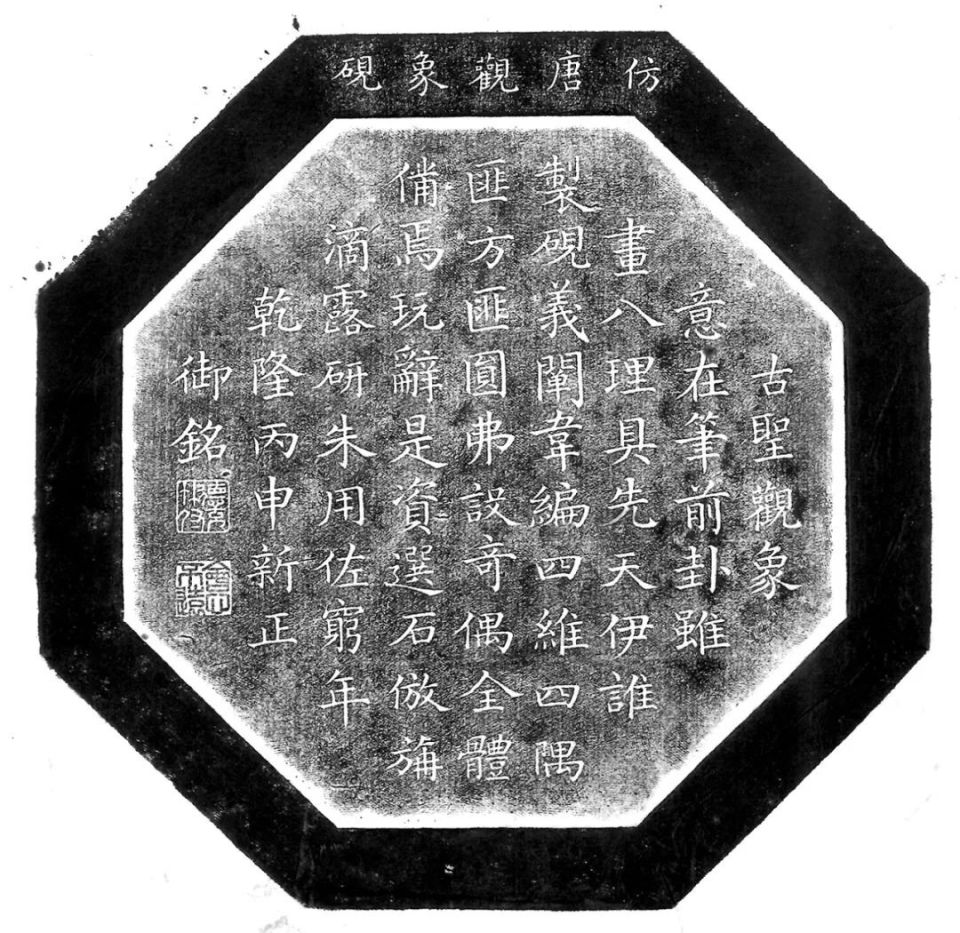 仿唐觀象硯
古聖觀象
意在筆前卦雖
畫八理具先天伊誰
製硯義闡韋編四維四隅
匪方匪圓弗設奇偶全體
備焉玩辭是資選石倣旃
滴露研朱用佐窮年
乾隆丙申新正
御銘